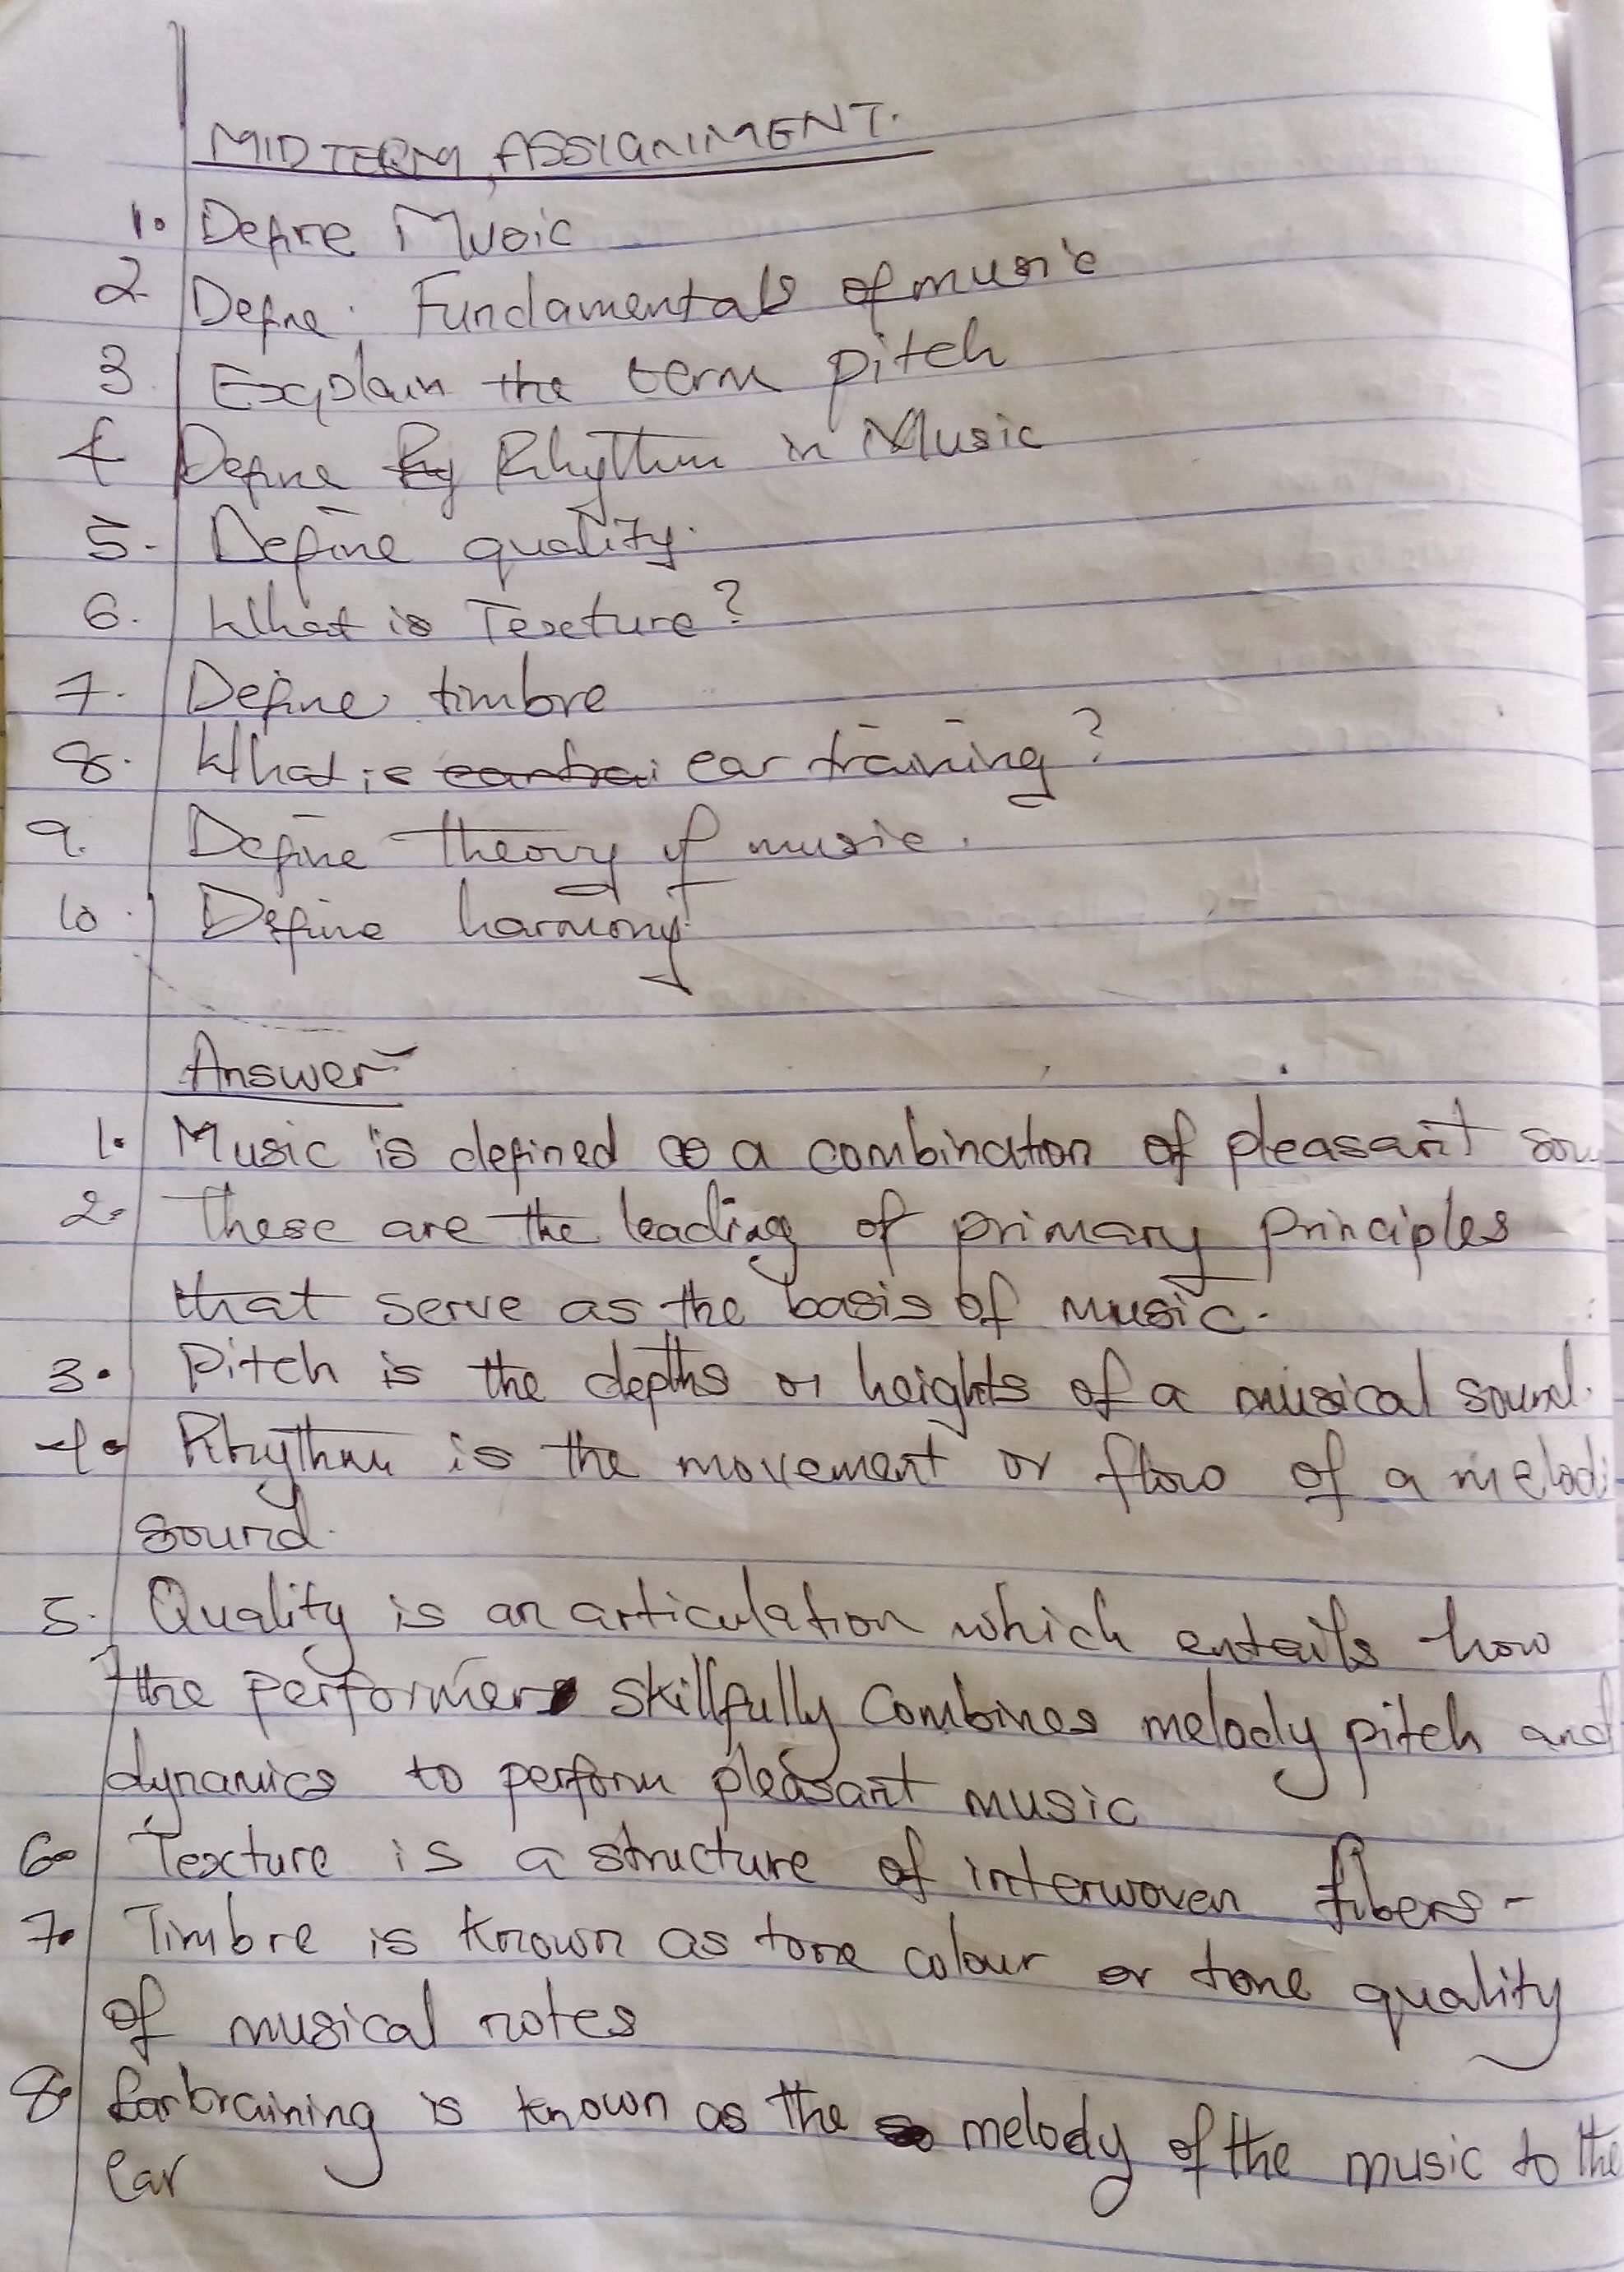 MIDTERM, ASSIGNIMENT.
1. Define Music
2. Define. Fundamentals of music
3. Explain the term pitch
4. Define Rhythm in Music
5. Define quality.
6. What is Texture?
7. Define timbre
8. What is ear training?
9. Define theory of music.
10. Define harmony.
Answer
1. Music is defined as a combination of pleasant
2. These are the leading of primary principles
that serve as the basis of music.
3. Pitch is the depths or heights of a musical sound.
4. Rhythm is the movement or flow of a
sound.
5. Quality is an articulation which entails how
the performer skillfully combines melody pitch and
dynamics to perform pleasant music
6. Texture is a structure of interwoven fibers-
7. Timbre is known as tone colour or tone quality
of musical notes
8. Eartraining is known as the melody of the music to the
Ear